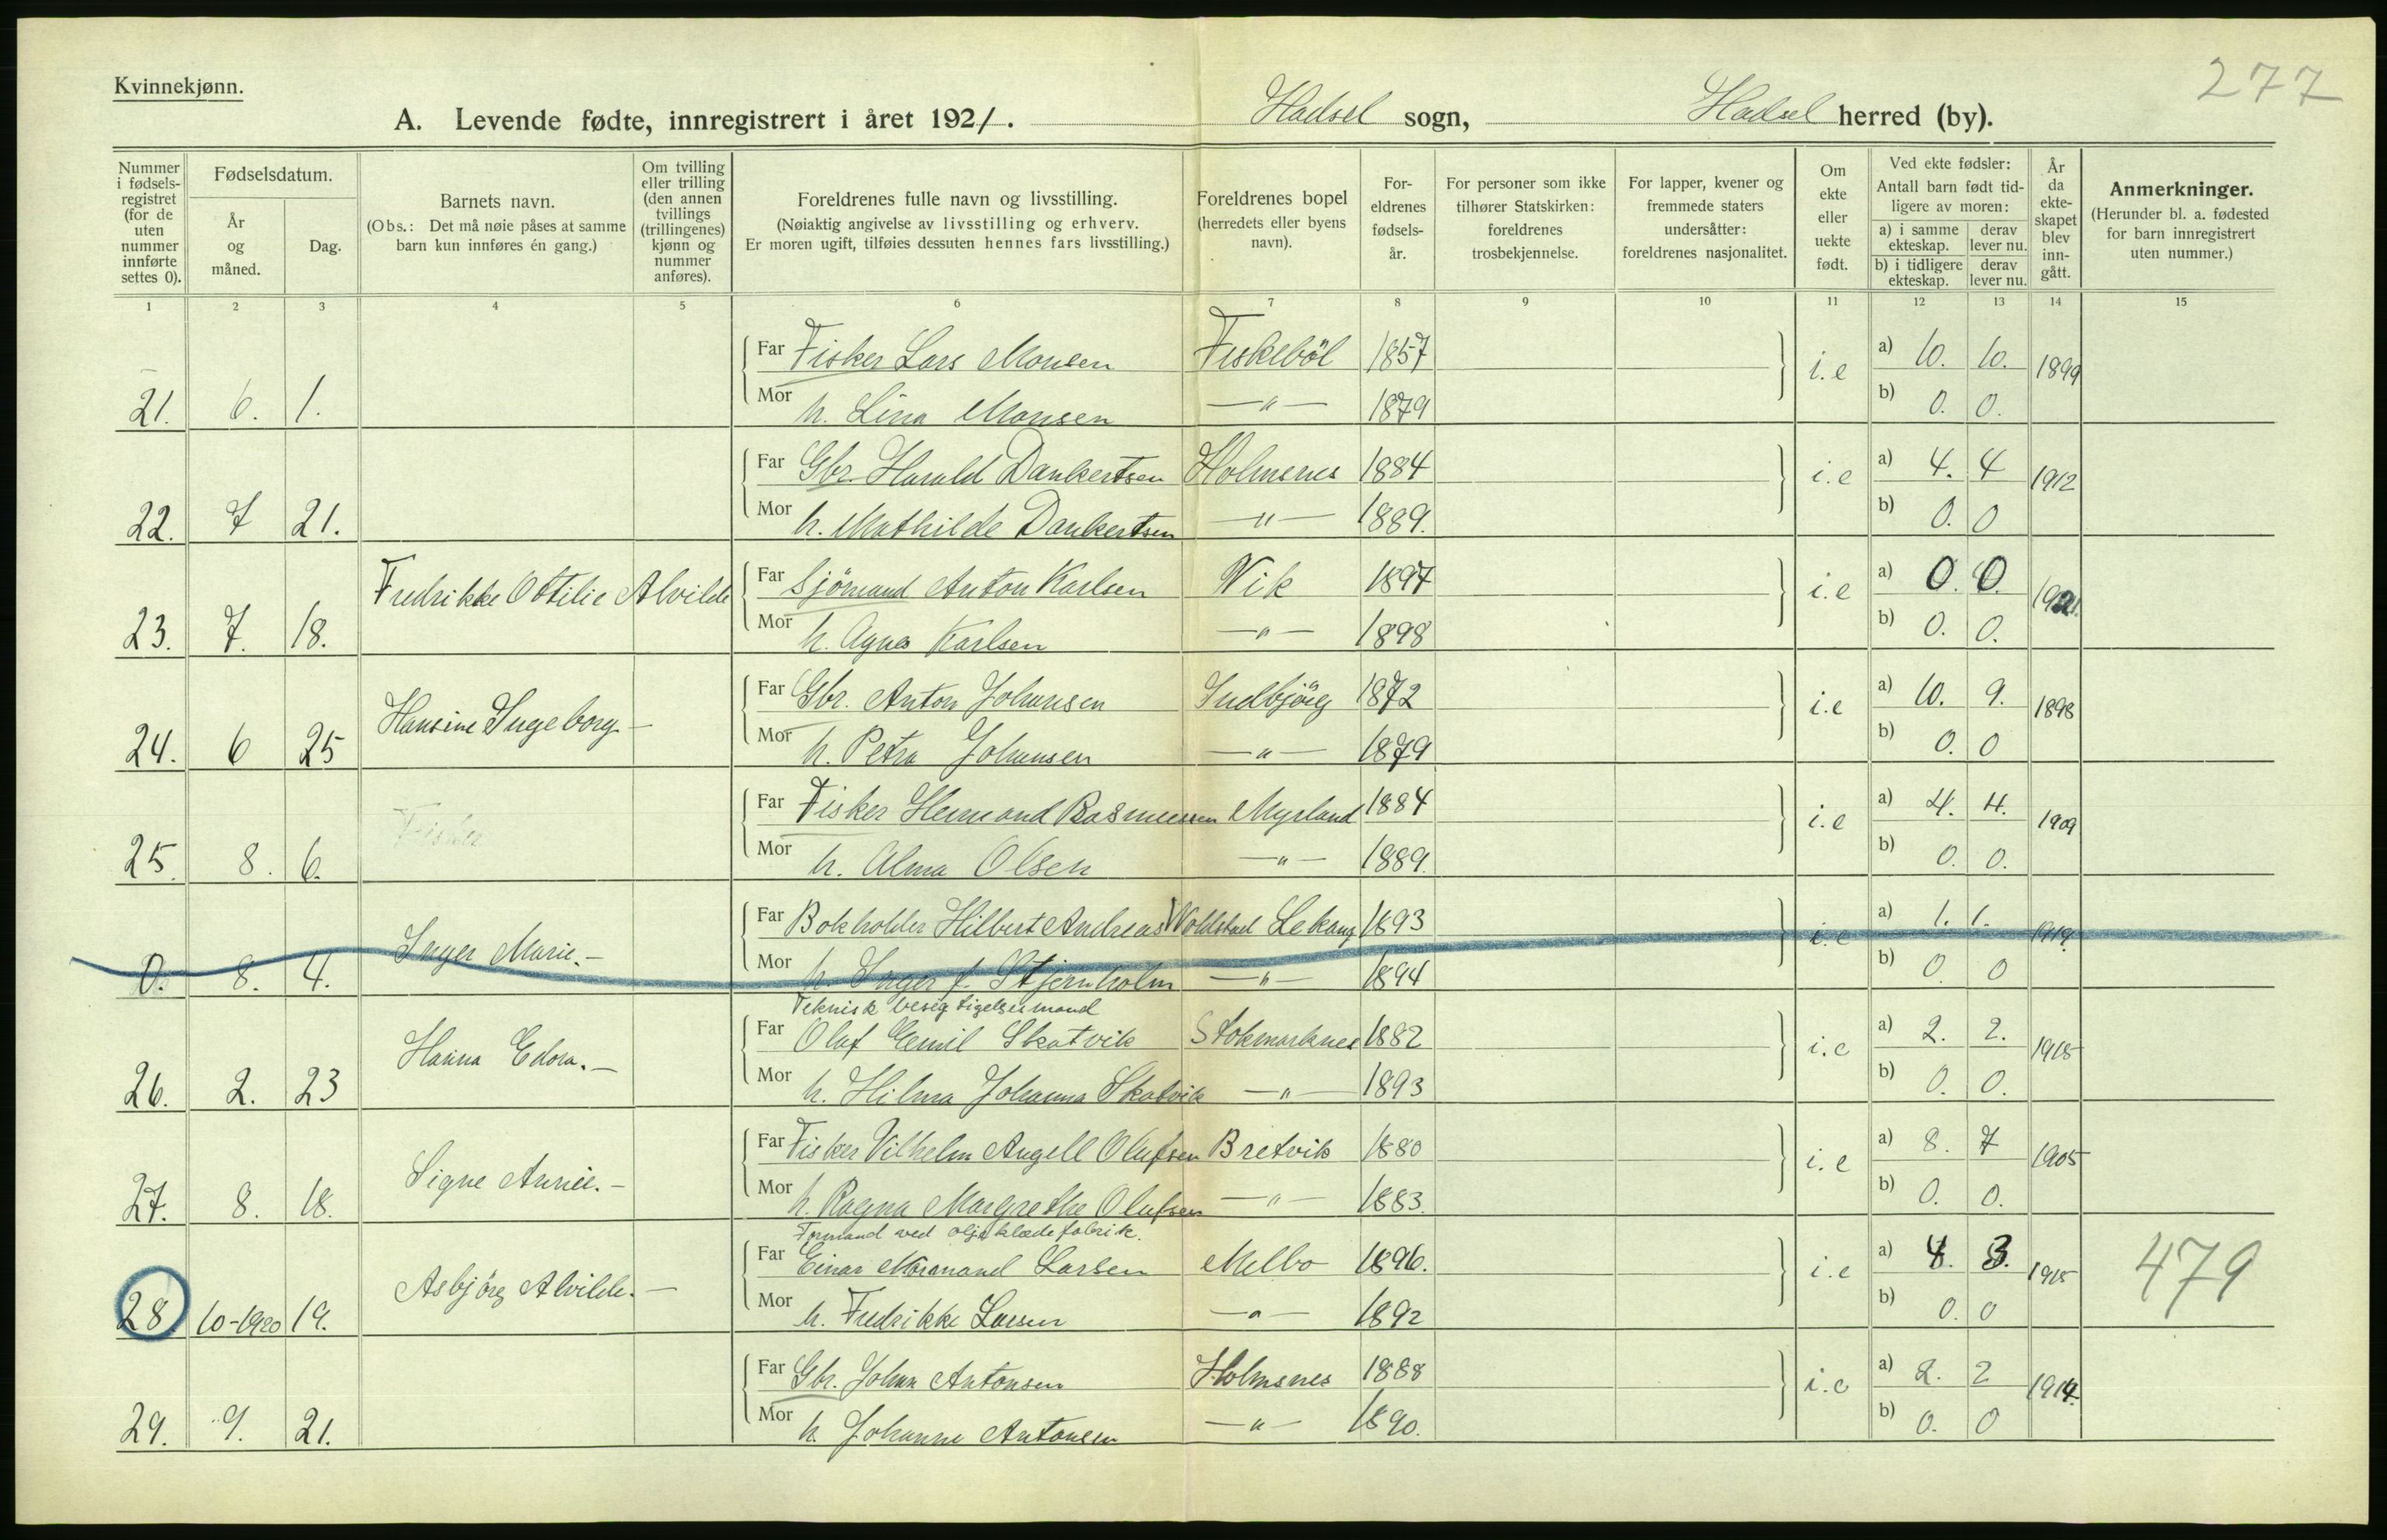 277
Kvinnekjønn.
A. Levende fødte, innregistrert i året 1921. Hadsel sogn, Hadsel herred (by).
Nummer i fødsels-registret (for de uten nummer innførte settes 0).
Fødselsdatum.
År og måned.
Dag.
Barnets navn.
(Obs.: Det må nøie påses at samme barn kun innføres én gang.)
Om tvilling eller trilling (den annen tvillings (trillingenes) kjønn og nummer anføres).
Foreldrenes fulle navn og livsstilling.
(Nøiaktig angivelse av livsstilling og erhverv.
Er moren ugift, tilføies dessuten hennes fars livsstilling.)
Foreldrenes bopel
(herredets eller byens navn).
For-eldrenes fødsels-år.
For personer som ikke tilhører Statskirken: foreldrenes trosbekjennelse.
For lapper, kvener og fremmede staters undersåtter: foreldrenes nasjonalitet.
Om ekte eller uekte født.
Ved ekte fødsler:
Antall barn født tid-ligere av moren:
a) i samme ekteskap. derav lever nu.
b) i tidligere ekteskap. derav lever nu.
År da ekte-skapet blev inn-gått.
Anmerkninger.
(Herunder bl. a. fødested for barn innregistrert uten nummer.)
1 2 3 4 5 6 7 8 9 10 11 12 13 14 15
Far Fisker Lars Monsen Fiskeböl 1857 i.e a) 10. 10. 1899
21. 6. 1. Mor h. Lina Monsen —"— 1879 b) 0. 0.
Far Gbr. Harald Dankertsen Holmenes 1884 i.e a) 4. 4 1912
22. 7 21. Mor h. Mathilde Dankertsen —"— 1889. b) 0. 0
Fredrikke Ottilie Alvilde Far Sjömand Anton Karlsen Vik 1897 i.e a) 0. 0.
23. 7. 18. Mor h. Agnes Karlsen —"— 1898 b) 0. 0.
Hansine Ingeborg — Far Gbr. Anton Johansen 1872 i.e a) 10. 9. 1898
24. 6 25 Mor h. Petra Johansen —"— 1879 b) 0. 0
Fisker Far Fisker Hermand Rasmussen Myrland 1884 i.e a) 4. 4. 1909
25. 8. 6. Mor h. Alma Olsen —"— 1889. b) 0. 0.
Inger Marie. — Far Bokholder Hilbert Andreas Woldstad Lekang 1893 i.e a) 1. 1. 1919.
0. 8. 4. Mor h. Inger f. Stjernholm —"— 1894 b) 0 0
Teknisk besigtigelsesmand
Hanna Edora. — Far Olaf Emil Skatvik Stokmarknes 1882 i.e a) 2. 2. 1918
26. 2. 23 Mor h. Hilma Johanna Skatvik —"— 1893 b) 0. 0.
Signe Annie. — Far Fisker Vilhelm Angell Olufsen Bretvik 1880 i.e a) 8. 7 1905
27. 8. 18. Mor h. Ragna Margrethe Olufsen —"— 1883. b) 0. 0.
Formand ved oljeklædefabrik.
Asbjörg Alvilde. — Far Einar Larsen Melbo 1896. i.e a) 4. 3. 1915 479
28. 10-1920 19. Mor h. Fredrikke Larsen —"— 1892 b) 0. 0
Far Gbr. Johan Antonsen Holmsnes 1888 i.e a) 2. 2 1914.
29. 9. 21. Mor h. Johanne Antonsen —"— 1890. b) 0. 0